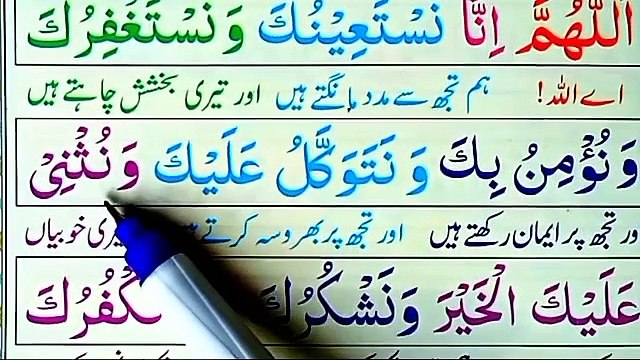 اَللّٰهُمَّ اِنَّا نَسْتَعِيْنُكَ وَ نَسْتَغْفِرُكَ
اے اللہ! ہم تجھ سے مدد مانگتے ہیں اور تیری بخشش چاہتے ہیں
وَ نُؤْمِنُ بِكَ وَ نَتَوَكَّلُ عَلَيْكَ وَ نُثْنِيْ
ور تجھ پر ایمان رکھتے ہیں اور تجھ پر بھروسہ کرتے خوبیاں
عَلَيْكَ الْخَيْرَ وَ نَشْكُرُكَ